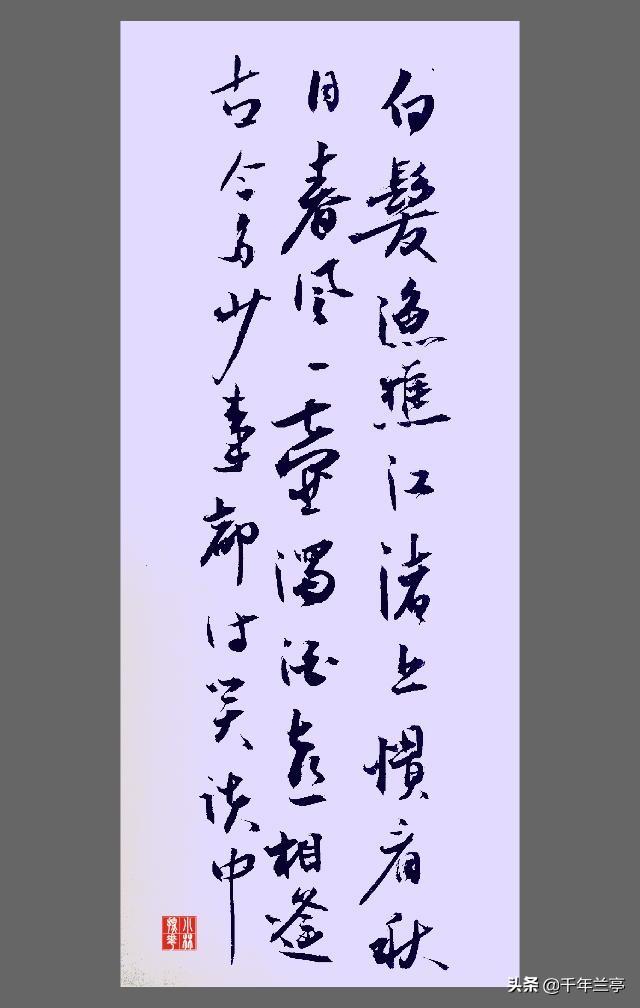 白髮漁樵江渚上慣看秋
月春風一壺濁酒喜相逢
古今多少事都付笑談中
小林
头条 @千年兰亭